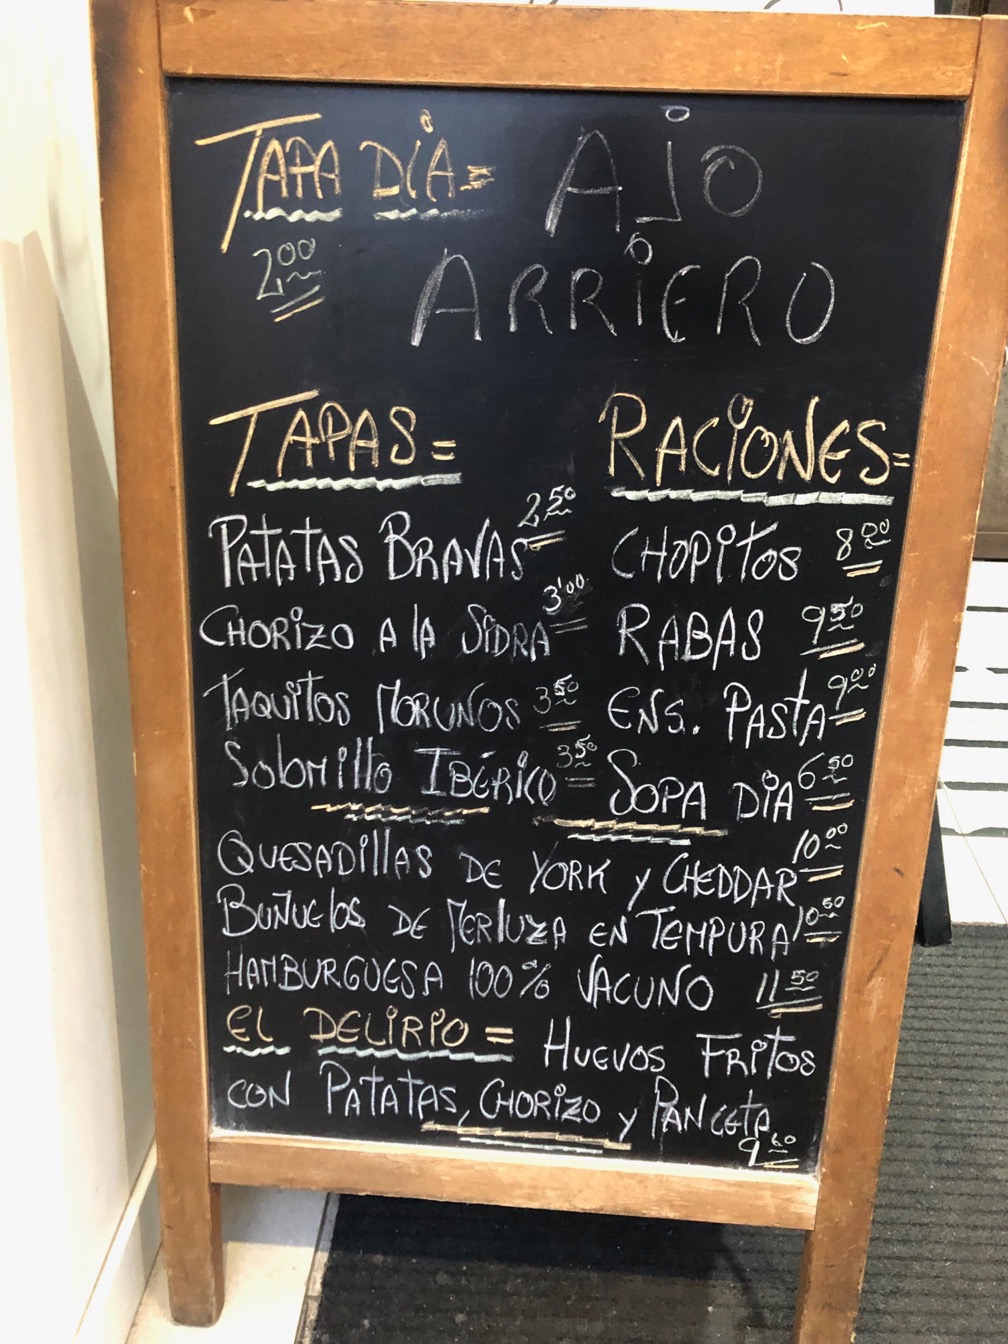 TAPA DíA= AJO
2,00 ARRiERO
TAPAS=
PATATAS BRAVAS 2,50
CHORIZO A lA SiDRA 3'00
TAQUITOS MORUNOS 3,50
SolOMillo IBÉRICO 3,50
RACiONES=
CHOPITOS 8,00
RABAS 9,50
ENS. PASTA 9,00
SOPA DiA 6,50
QUESADillAS DE YORK y CHEDDAR 10,00
BUÑUElOS DE MERlUZA EN TEMPURA 10,50
HAMBURGUESA 100% VACUNO 11,50
EL DELiRiO= HUEVOS FRiTOS
CON PATATAS, CHORIZO y PANCETA